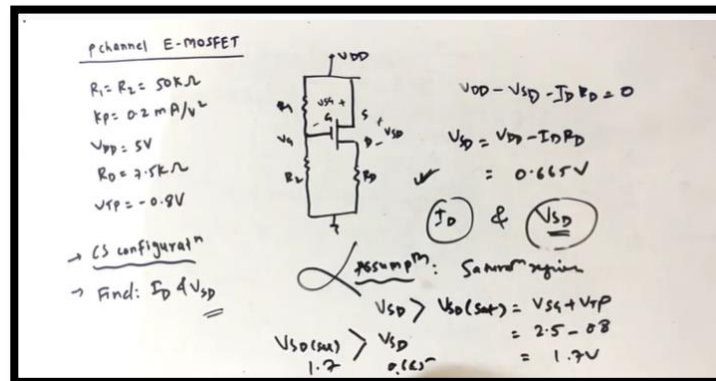 p channel E-MOSFET
R1 = R2 = 50KΩ
KP = 0.2 mA/V²
VDD = 5V
RD = 7.5KΩ
VTP = -0.8V
→ CS configuratⁿ
→ Find: ID & VSD
VDD
R1
VSG +
- G
S
+
VG
D
-
VSD
R2
RD
VDD - VSD - ID RD = 0
VSD = VDD - ID RD
= 0.665V
ID & VSD
Assumpⁿ: Saturⁿ region
VSD > VSD (sat) = VSG + VTP
= 2.5 - 0.8
= 1.7V
VSD (sat) > VSD
1.7 0.665